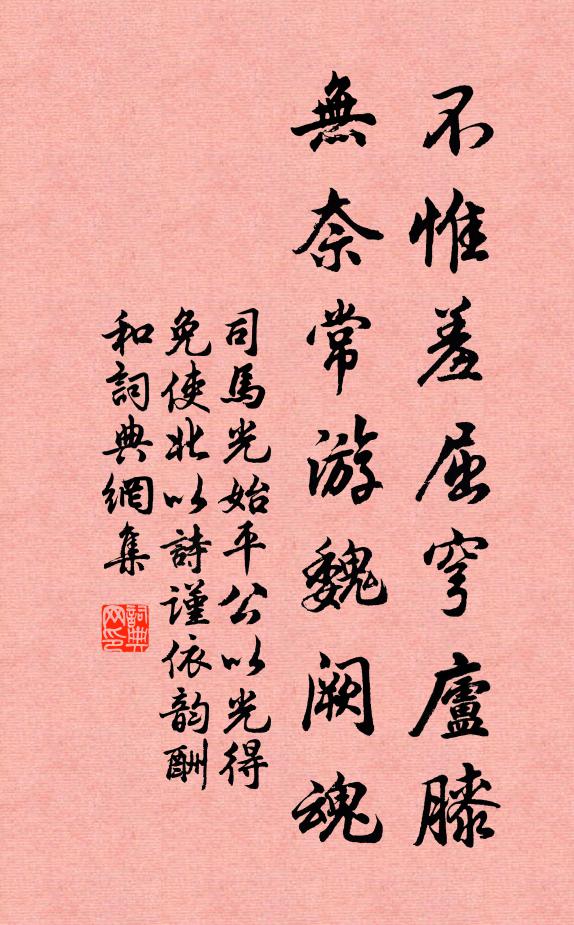 不惟羞屈穹廬膝
無奈常游魏闕魂
司馬光始平公以光得
免使北以詩謹依韵酬
和詞典網集
詞典
网印